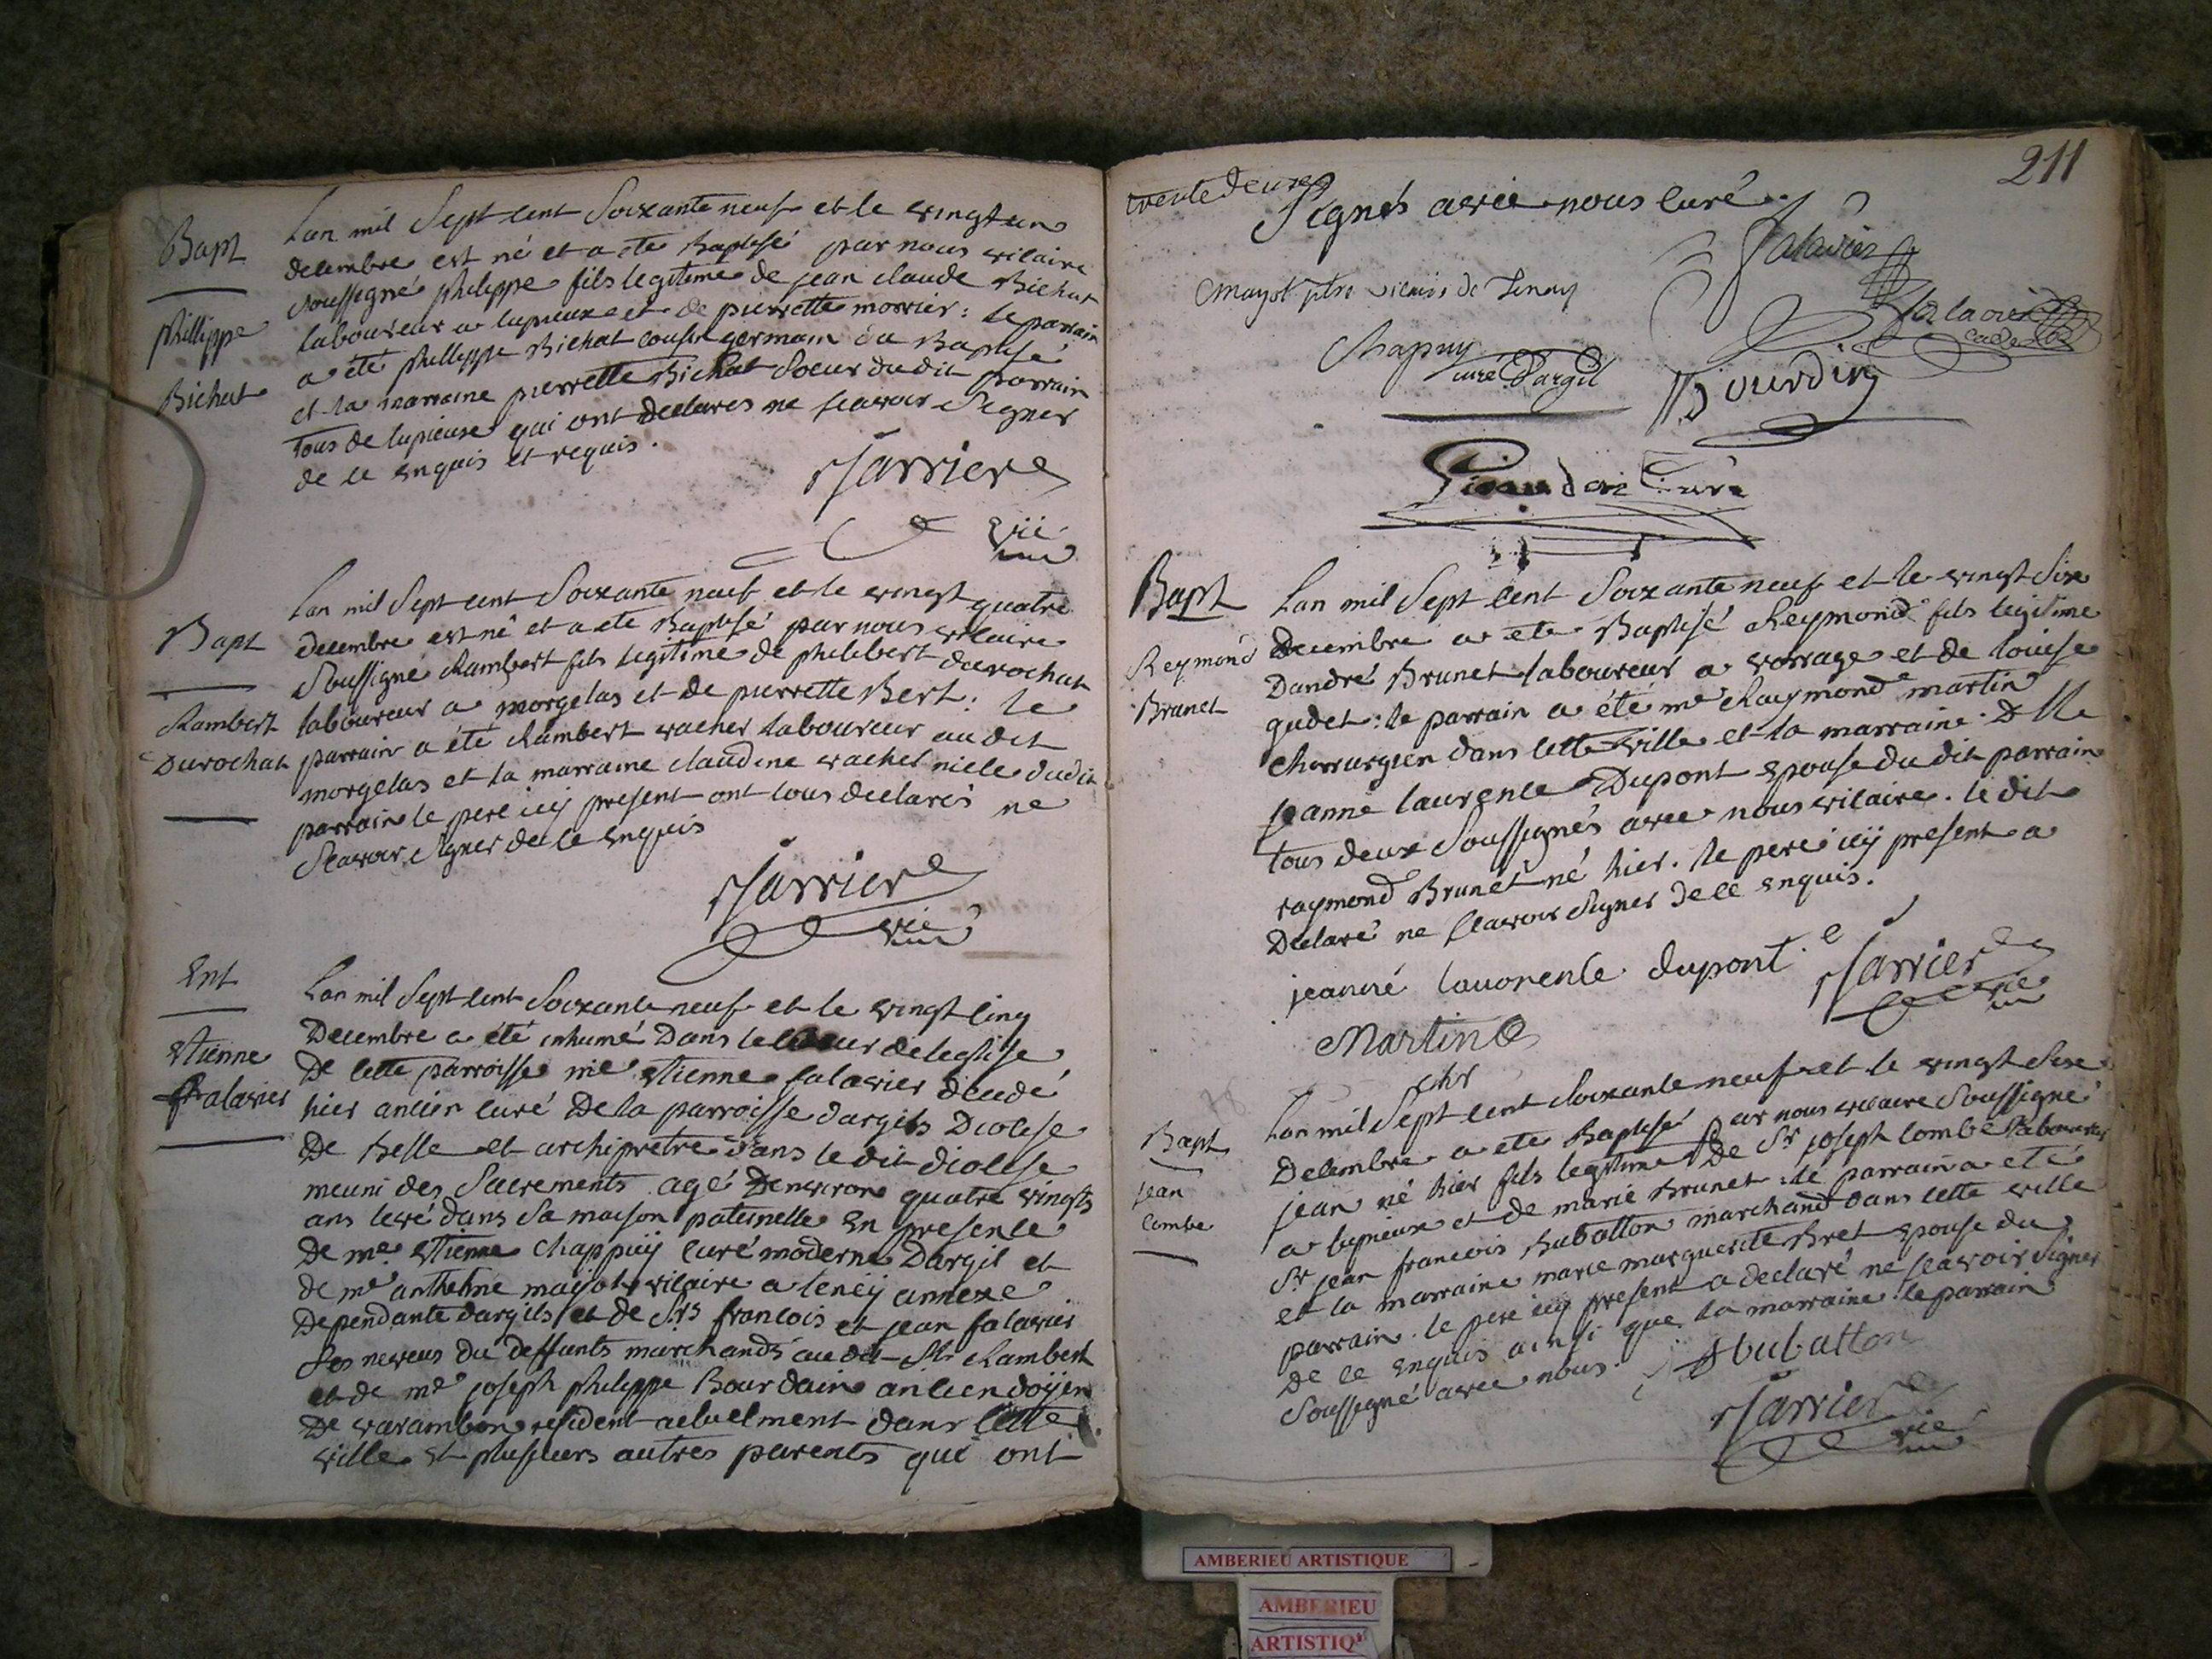 Bapt
Phillippe
Bichat
Lan mil Sept cent Soixante neuf et le vingt un
decembre est né et a été Baptisé par nous vicaire
soussigné philippe fils legitime de jean claude Bichat
laboureur a lupieux et de pierrette morrier : le parrain
a été philippe Bichat cousin germain du Baptisé
et la marraine pierrette Bichat Soeur du dit parrain
tous de lupieux qui ont declarés ne scavoir Signer
de ce enquis et requis.
Jarrier
vic
Bapt
Rambert
Durochat
Lan mil Sept cent Soixante neuf et le vingt quatre
decembre est né et a été Baptisé par nous vicaire
Soussigné Rambert fils legitime de philibert durochat
laboureur a morgelas et de pierrette Bert : le
parrain a été Rambert vacher laboureur au dit
morgelas et la marraine claudine vachel niece dudit
parrain le pere icy present ont tous declarés ne
Scavoir Signer de ce enquis
Jarrier
vic
Ent
Etienne
falavier
Lan mil Sept cent Soixante neuf et le vingt cinq
Decembre a été inhumé Dans le Coeur de leglise
De cette parroisse mre Etienne falavier decedé
hier ancien curé De la parroisse dargis Diocese
De Belle et archipretre dans le dit diocese
meuni des Sacrements agé Denviron quatre vingts
ans levé dans Sa maison paternelle En presence
De mre Etienne chappuy curé moderne Dargil et
de mre anthelme mayot vicaire a teney annexe
Dependante dargils et de Srs francois et jean falavier
Ses neveus du deffunts marchands audit St Rambert
et de mre joseph philippe Bourdain ancien doyen
De varambon resident actuelment dans cette
ville et plusieurs autres parents qui ont
211
trente deuxe
Signés avec nous curé
falavier
Mayot ptre vicaire de Tenay
falavier
cadet
Chapuy
curé Dargil
Bourdin
Curé
Bapt
Reymond
Brunet
Lan mil Sept cent Soixante neuf et le vingt Six
Decembre a été Baptisé Reymond fils legitime
Dandré Brunet laboureur a vorrage et de louise
gudet : le parrain a été mre Raymond martin
chirurgien dans cette ville et la marraine Dlle
jeanne laurence Dupont epouse du dit parrain
tous deux Soussignés avec nous vicaire. le dit
raymond Brunet né hier. le pere icy present a
Declaré ne scavoir Signer de ce enquis.
jeanne lauorence dupont
Jarrier
vic
Martin
chr
Bapt
jean
combe
Lan mil Sept cent Soixante neuf et le vingt Six
Decembre a été Baptisé Par nous vicaire Soussigné
jean né hier fils legitime De Sr joseph combe laboureur
a lupieux et de marie Brunet : le parrain a été
Sr jean francois Bubatton marchand dans cette ville
et la marraine marie marguerite Bret epouse du
parrain. le pere icy present a declaré ne scavoir Signer
De ce enquis ainsi que la marraine. le parrain
Soussigné avec nous.
Bubatton
Jarrier
vic
AMBERIEU ARTISTIQUE
AMBERIEU
ARTISTIQ